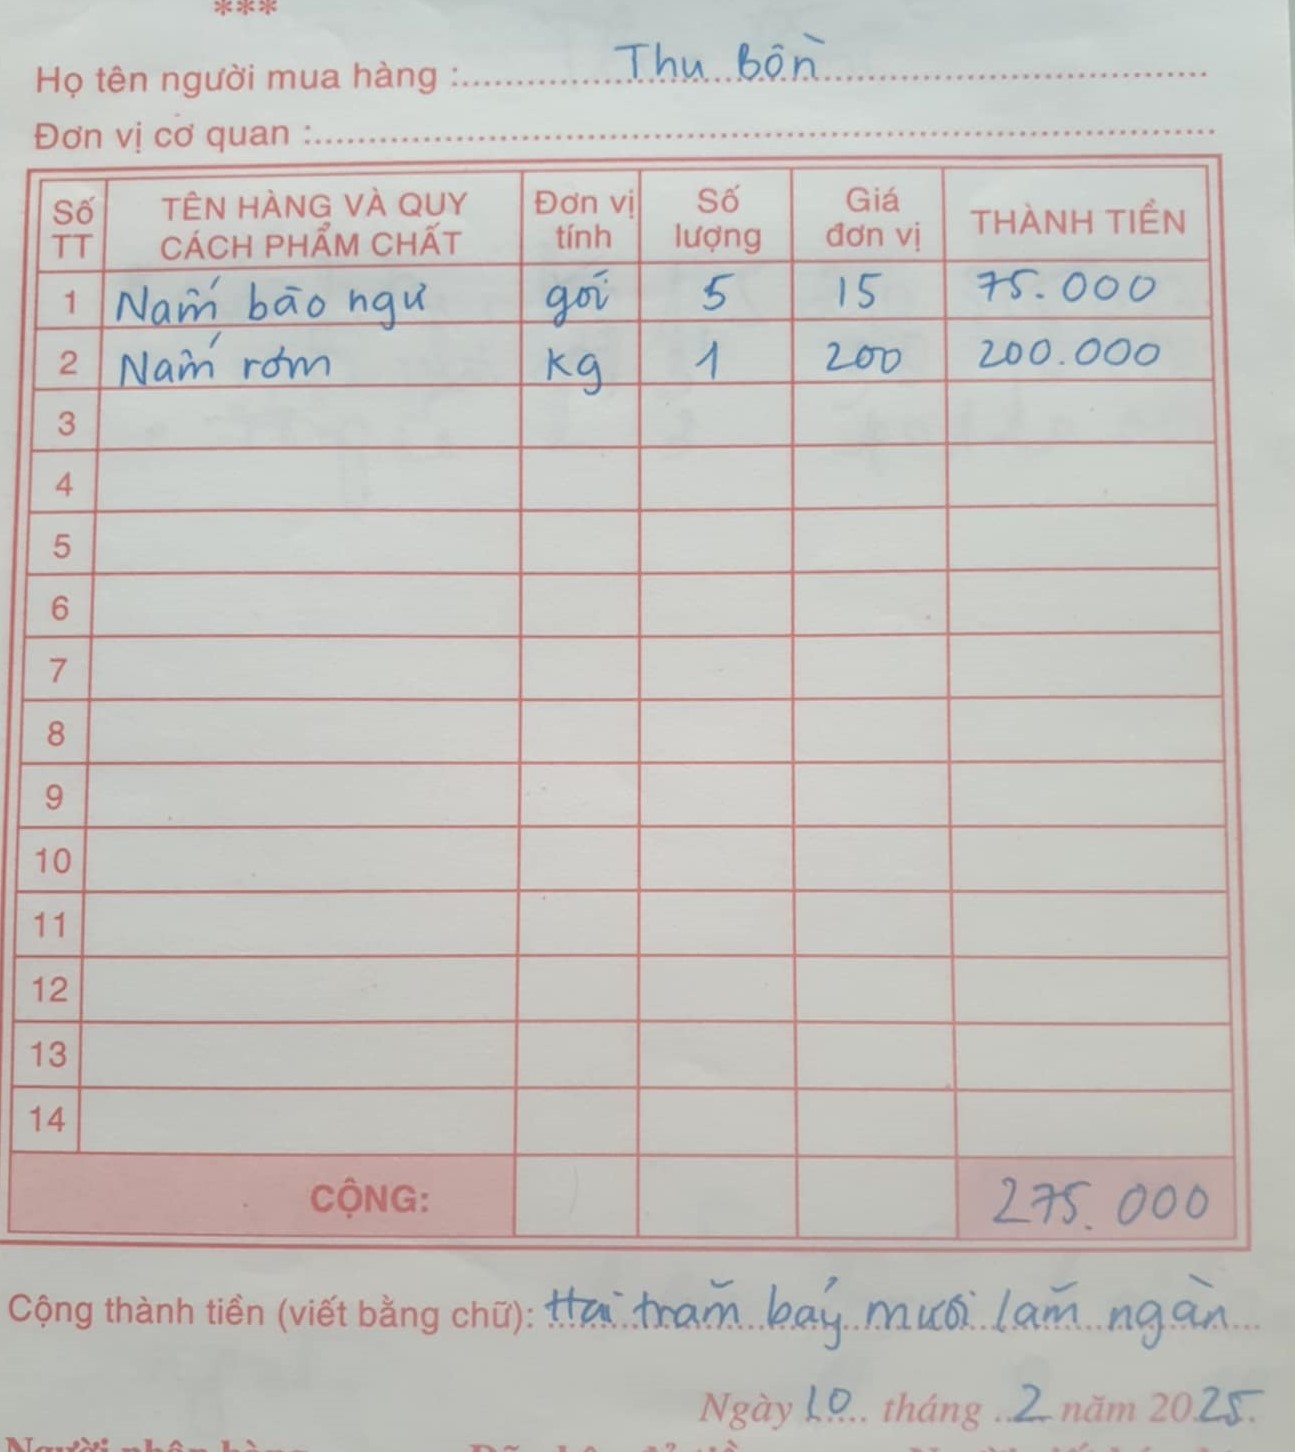 ***
Họ tên người mua hàng : Thu Bồn
Đơn vị cơ quan :
Số TT TÊN HÀNG VÀ QUY CÁCH PHẨM CHẤT Đơn vị tính Số lượng Giá đơn vị THÀNH TIỀN
1 Nấm bào ngư gói 5 15 75.000
2 Nấm rơm kg 1 200 200.000
3
4
5
6
7
8
9
10
11
12
13
14
CỘNG: 275.000
Cộng thành tiền (viết bằng chữ): Hai trăm bảy mươi lăm ngàn
Ngày 10 tháng 2 năm 2025.